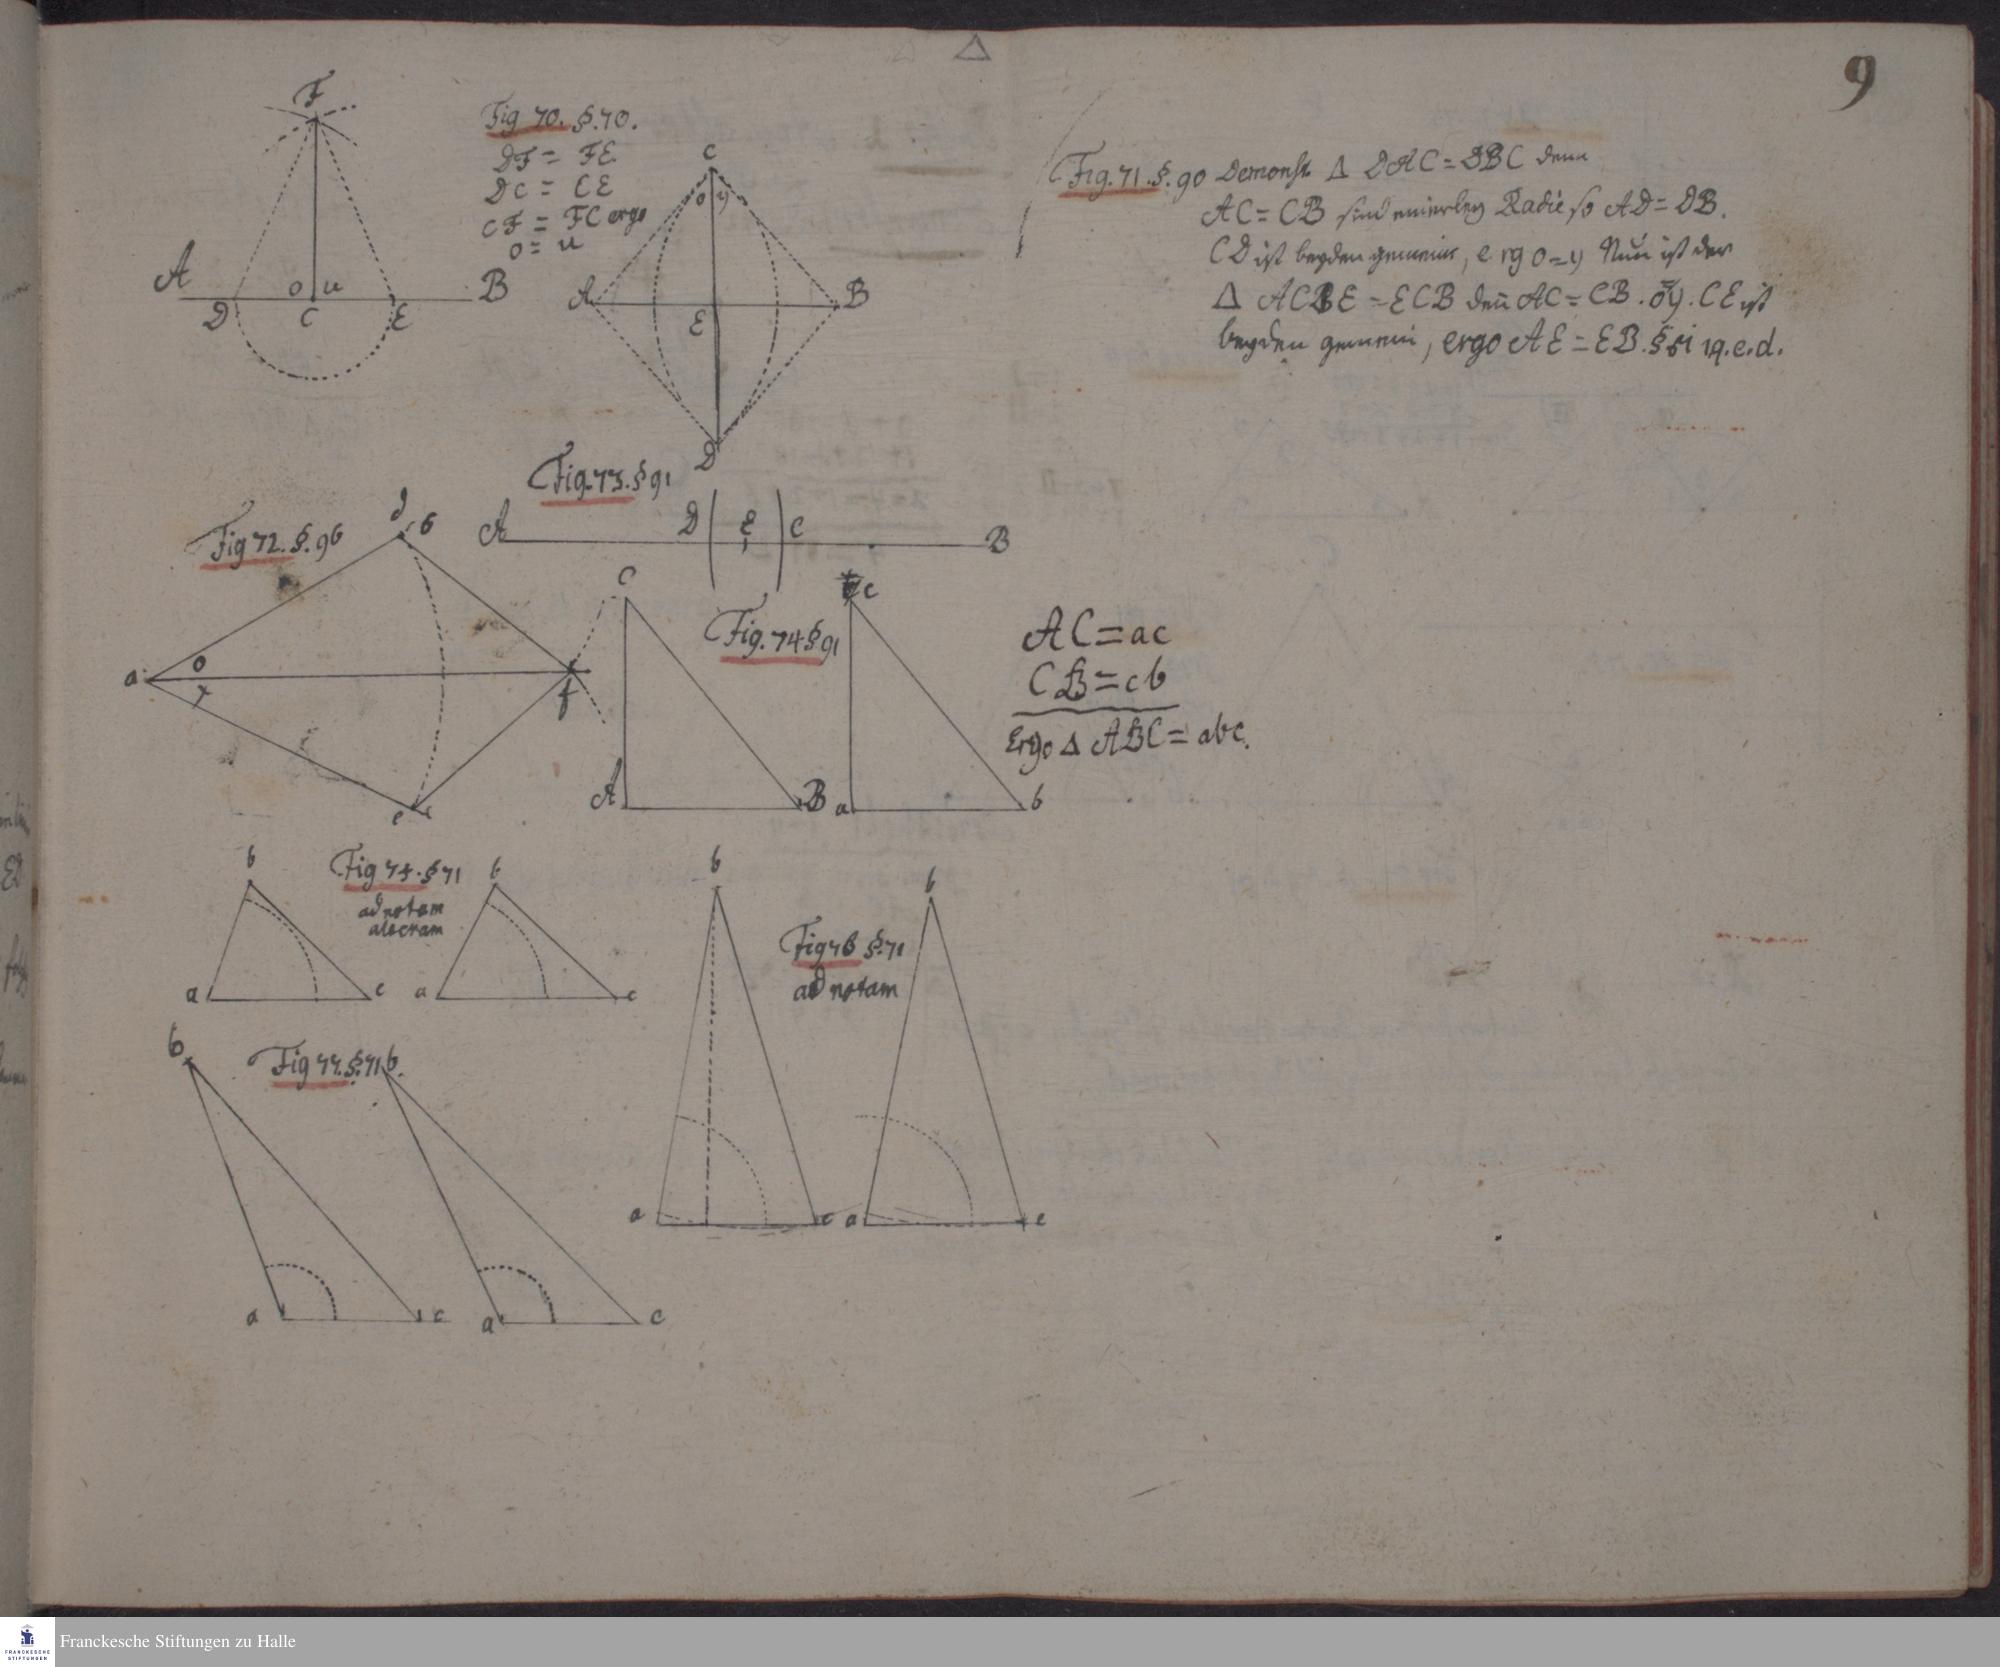 9
F
Fig 70. §. 70.
DF = FE
DC = CE
CF = FC ergo
o = u
A D o u C E B
C
o y
A E B
D
Fig. 71. §. 90 Demonst. Δ DAC = DBC denn
AC = CB sind einerley Radii so AD = DB.
CD ist beyden gemein, erg o = y Nun ist der
Δ ACBE = ECB den AC = CB. o=y. CE ist
beyden gemein, ergo AE = EB. § q.e.d.
Fig. 73. § 91
A D E C B
Fig 72. §. 96
d 6
a o x f
e
Fig. 74 § 91
C
A B
c
a b
AC = ac
CB = cb
Ergo Δ ABC = abc.
Fig 75. § 71
ad notam
b
a c
b
a c
Fig 76 §. 71
ad notam
b
a c
b
a c
Fig 77. §. 71
b
a c
b.
a c
Franckesche Stiftungen zu Halle
FRANCKESCHE
STIFTUNGEN